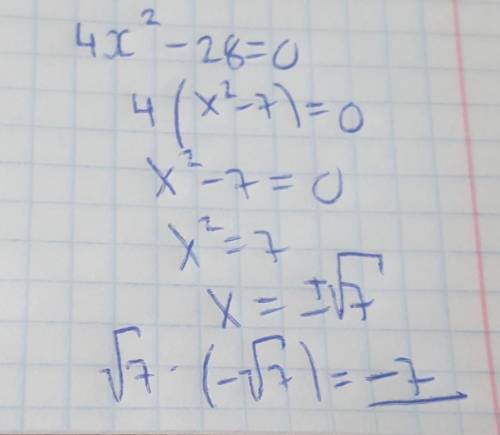 4x² - 28 = 0
4(x² - 7) = 0
x² - 7 = 0
x² = 7
x = ±√7
√7 · (-√7) = -7